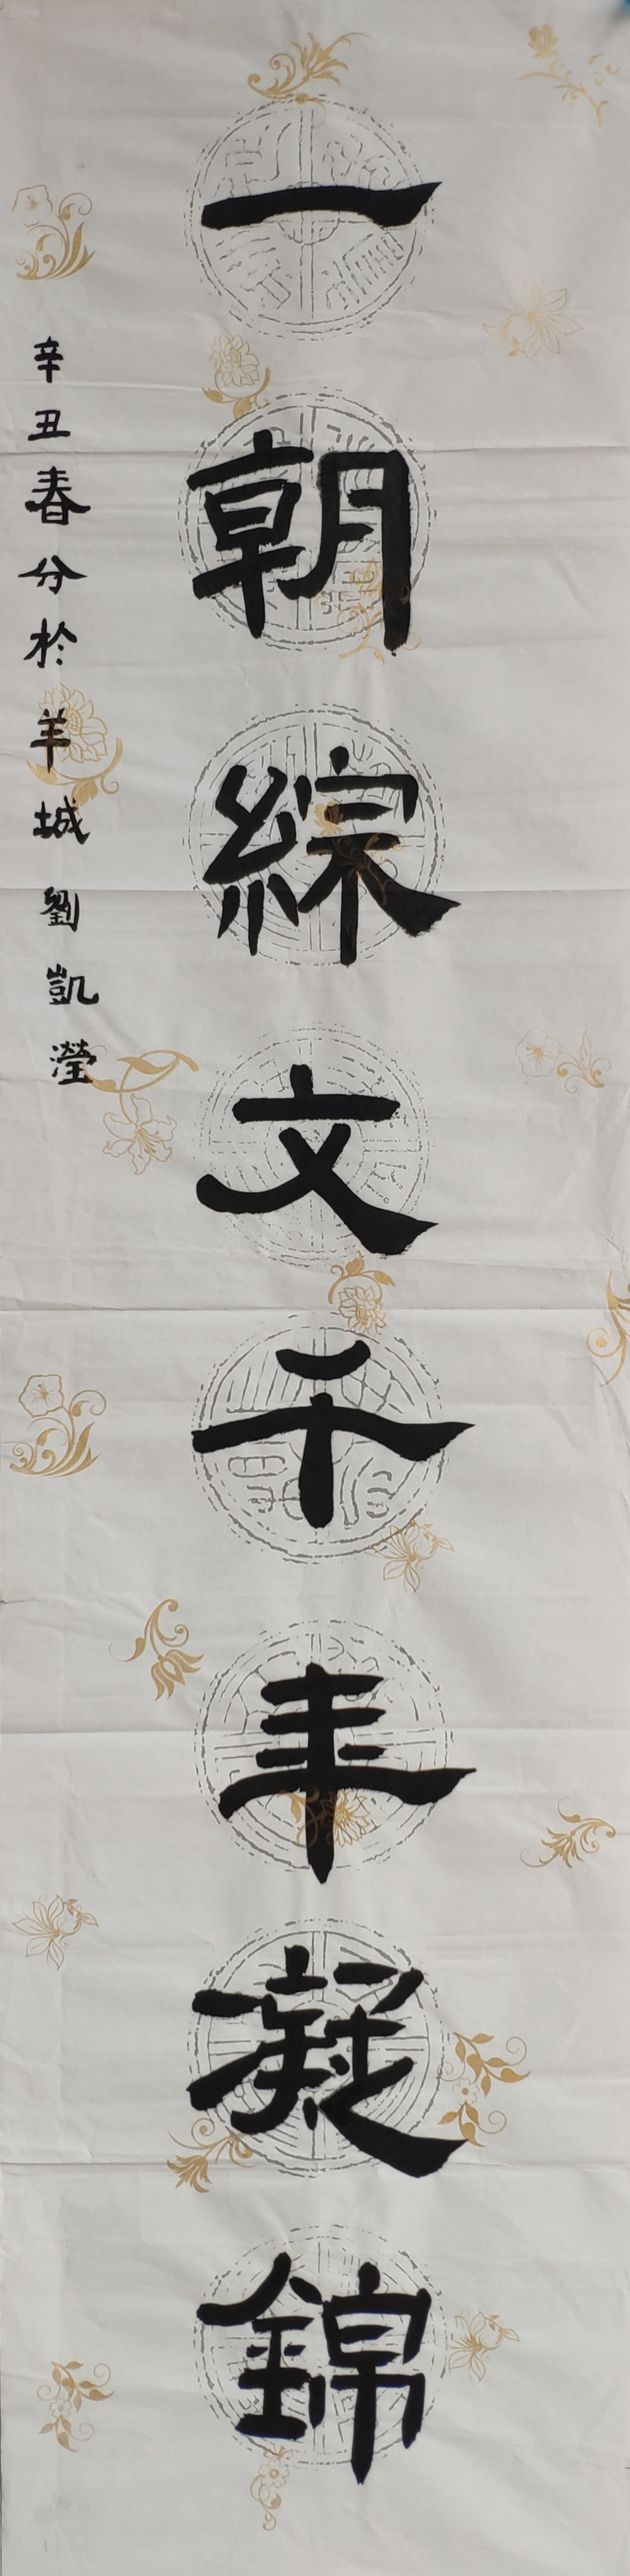 一朝綜文千年凝錦
辛丑春分於羊城劉凱瀅